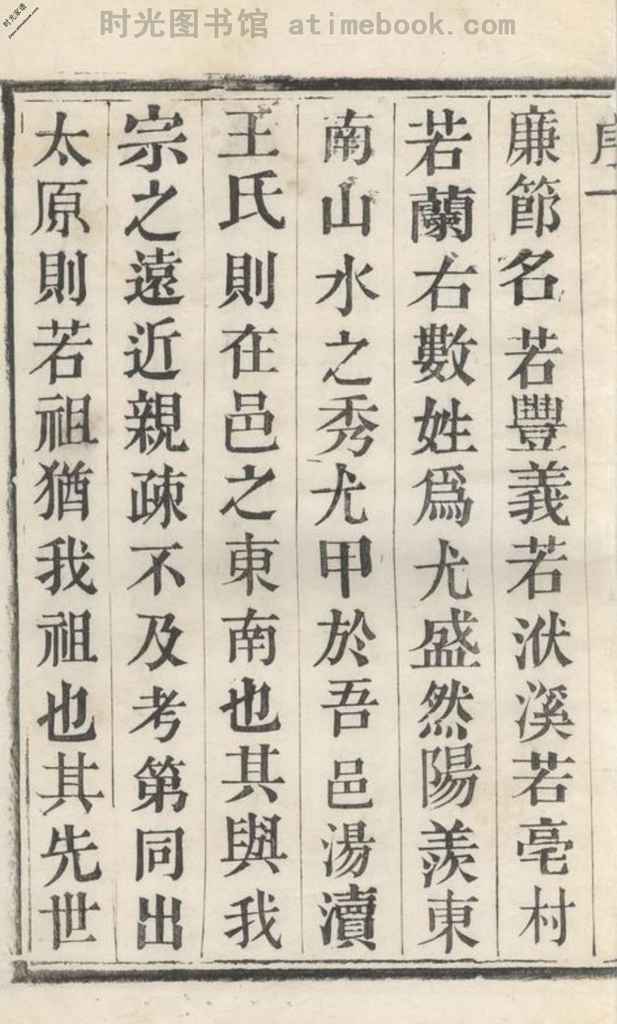 时光图书馆 atimebook.com
序一
廉節名若豐義若洑溪若亳村
若蘭右數姓爲尤盛然陽羨東
南山水之秀尤甲於吾邑湯瀆
王氏則在邑之東南也其與我
宗之遠近親疎不及考第同出
太原則若祖猶我祖也其先世